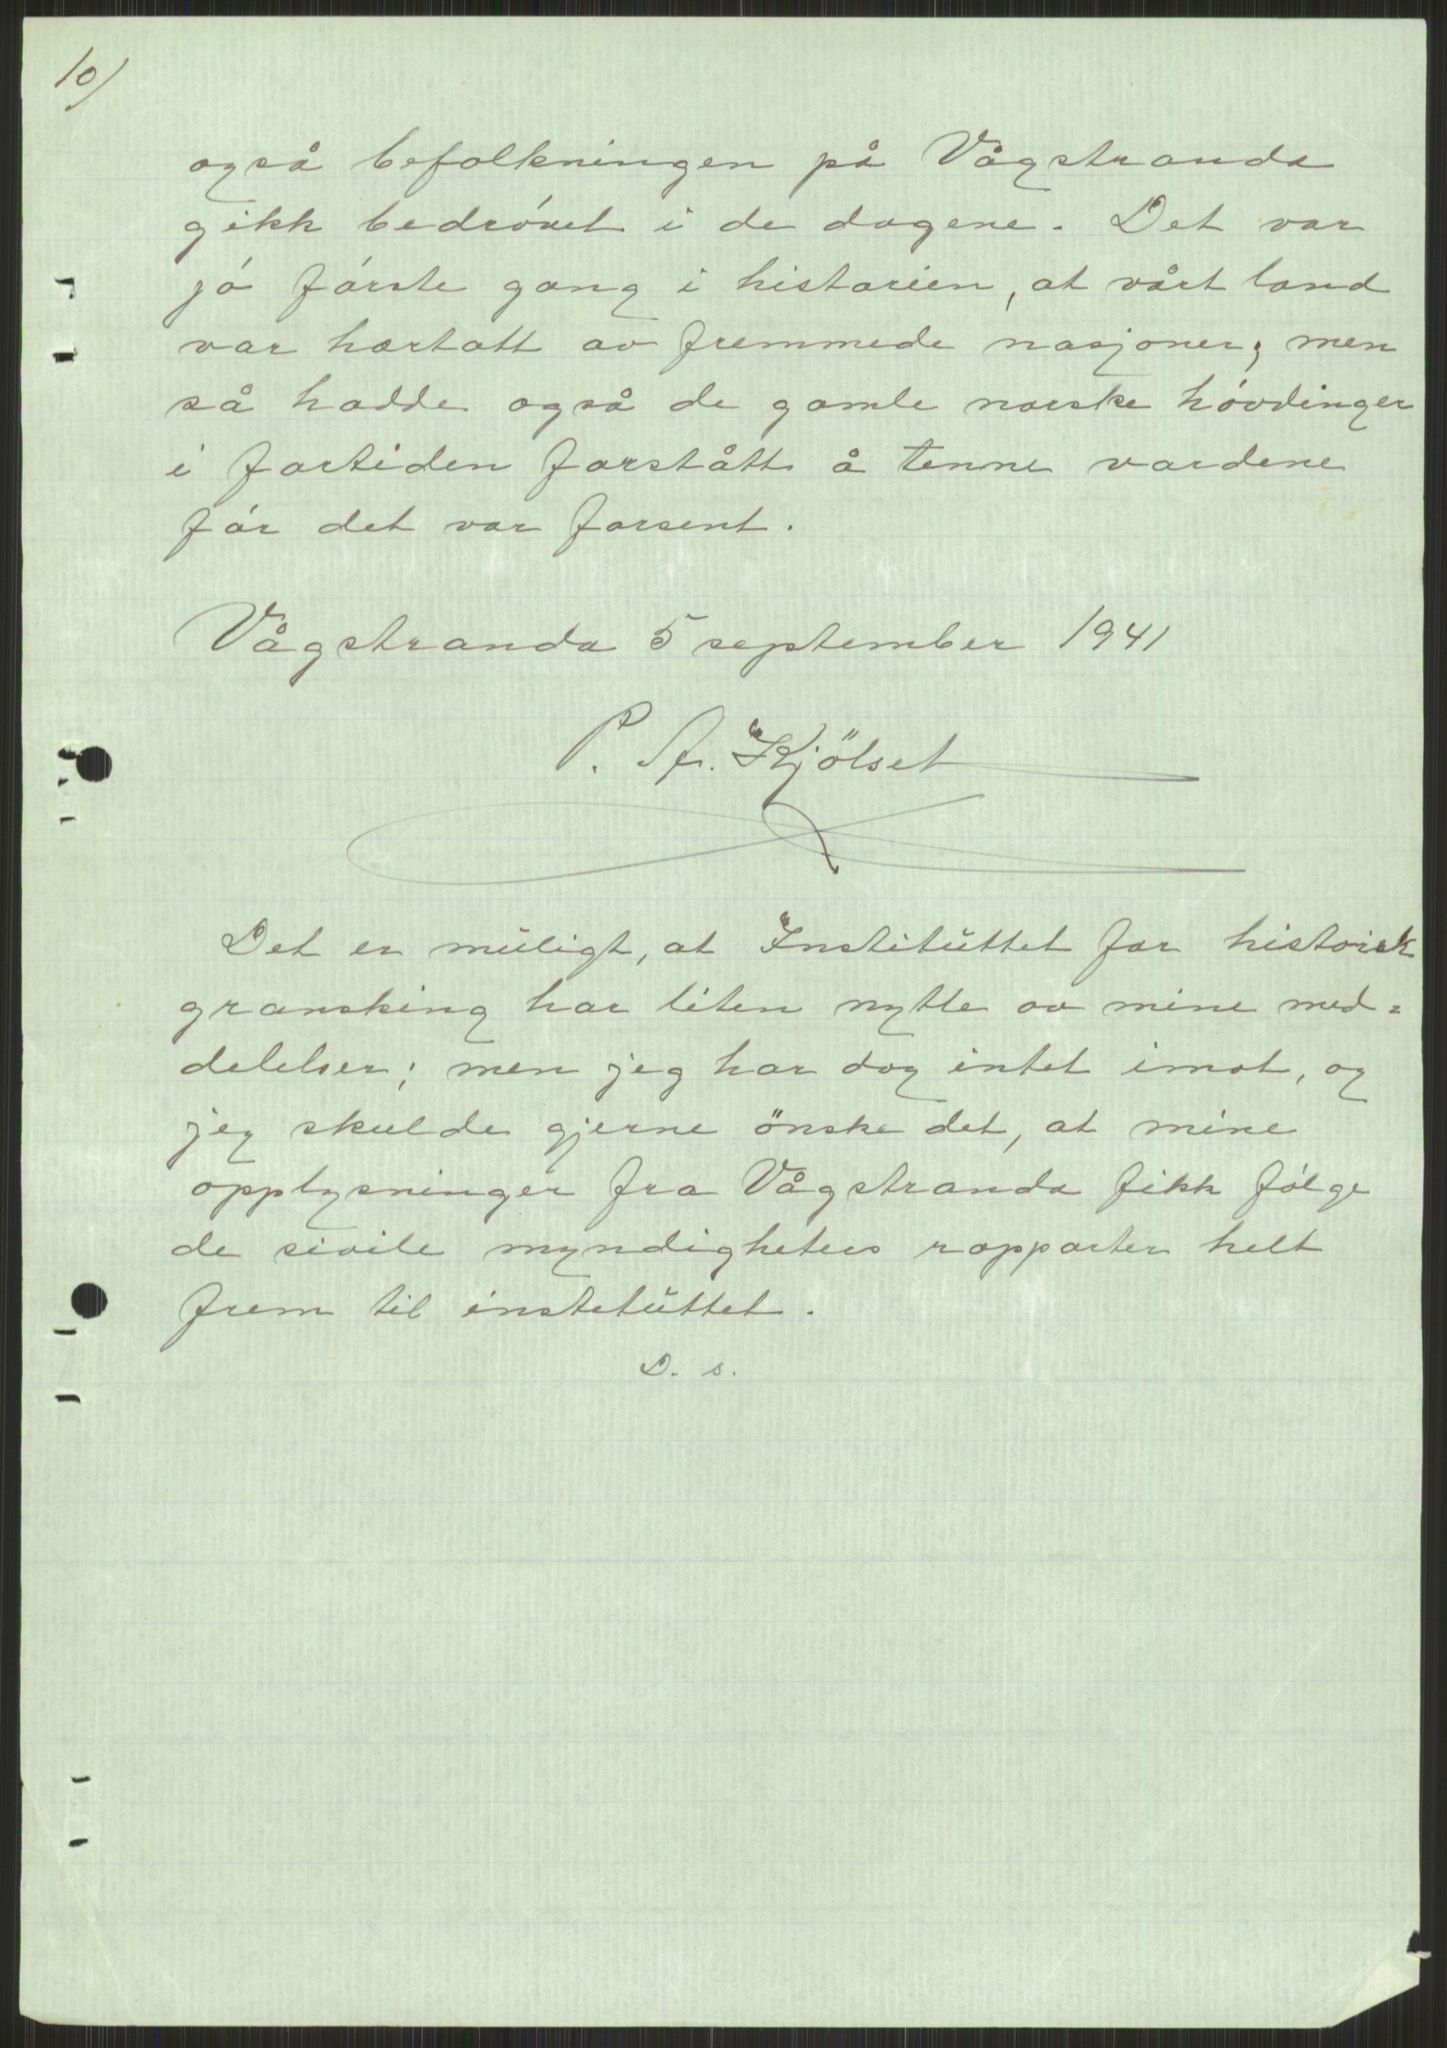 10/
også befolkningen på Vågstranda
gikk bedróvet i de dagene. Det var
jó fórste gang i historien, at vårt land
var hærtatt av fremmede nasjoner; men
så hadde også de gamle norske hóvdinger
i fortiden forstått å tenne vardene
fór det var forsent.
Vågstranda 5 september 1941
P. A. Kjölset
Det er muligt, at Instituttet for historisk
gransking har liten nytte av mine med=
delelser; men jeg har dog intet imot, og
jeg skulde gjerne önske det, at mine
opplysninger fra Vågstranda fikk fólge
de sivile myndigheters rapporter helt
frem til instetuttet.
D. s.